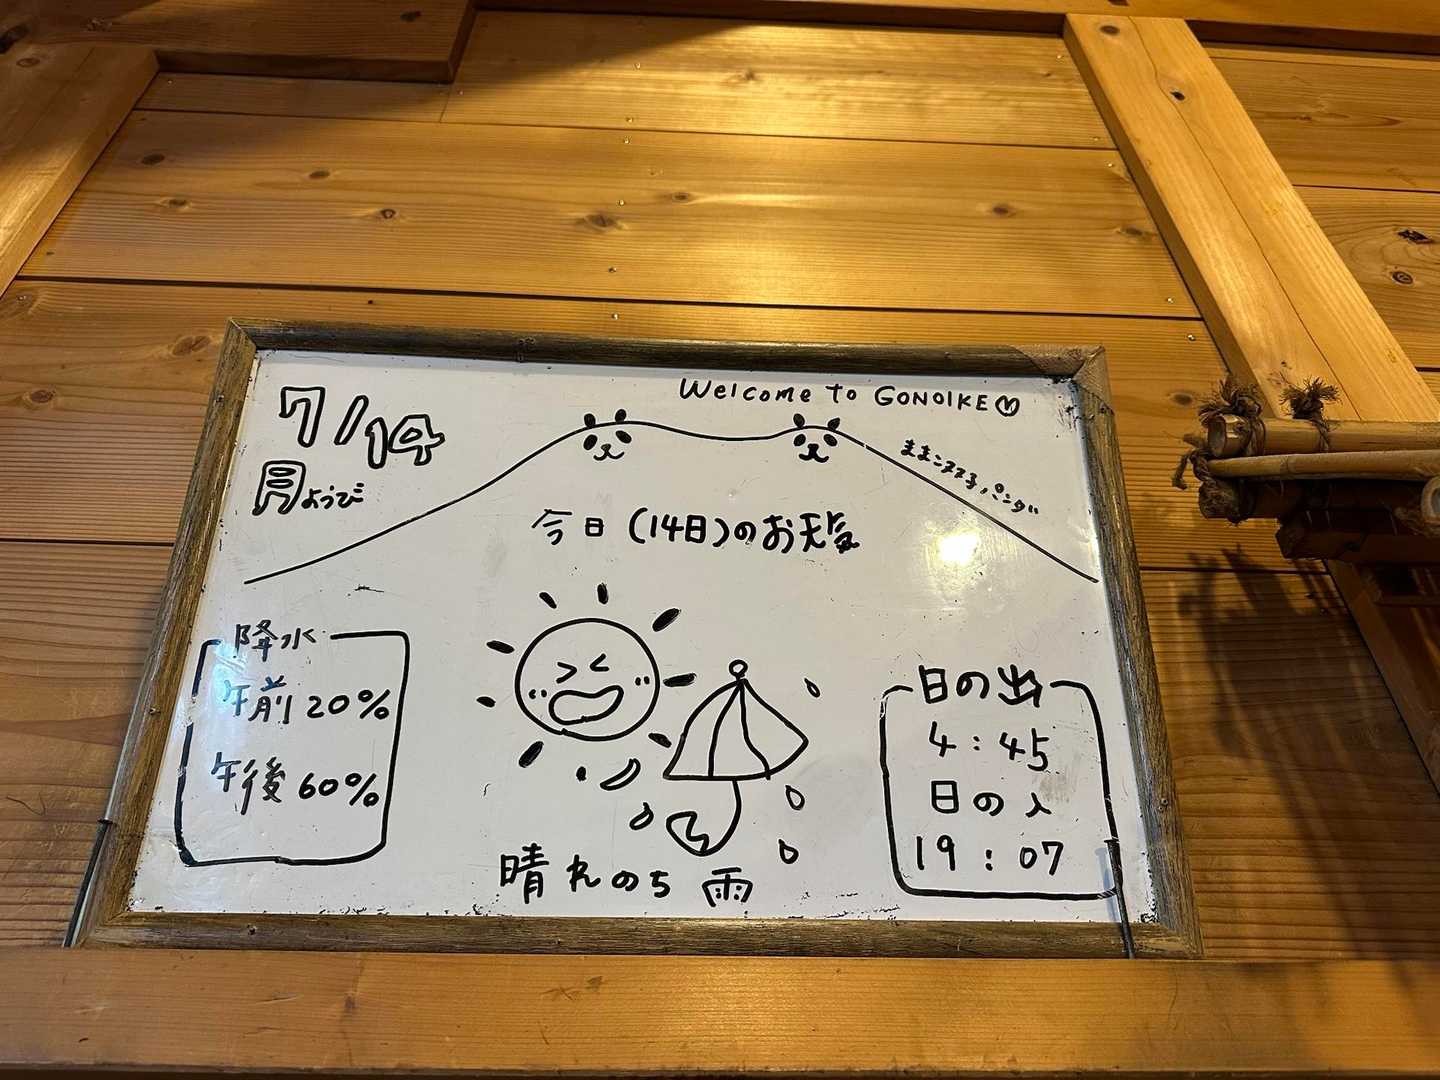 Welcome to GONOIKE
7/14
月ようび
パンダ
今日(14日)のお天気
降水
午前20%
午後60%
晴れのち雨
日の出
4:45
日の入
19:07